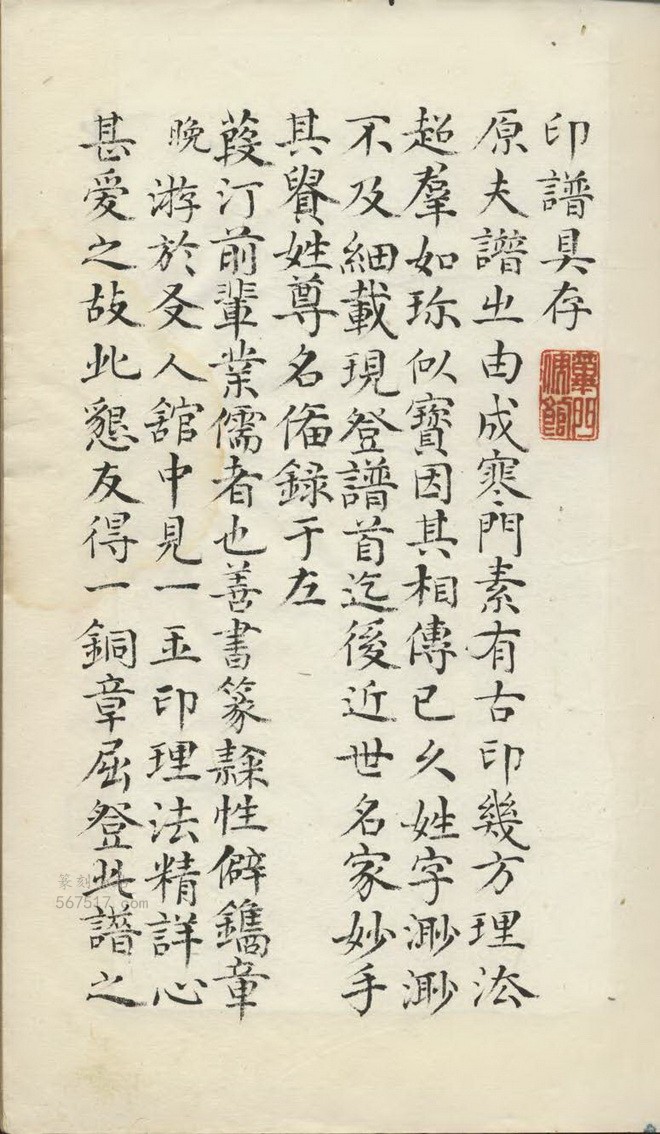 印譜具存
原夫譜㞢由成寒門素有古印幾方理法
超羣如珎似寶因其相傳已久姓字渺渺
不及細載現登譜首迄後近世名家妙手
其貴姓尊名俻録于左
葭汀前輩業儒者也善書篆隸性僻鐫章
晚游於友人舘中見一玉印理法精詳心
甚愛之故此懇友得一銅章屈登此譜之
篆刻
567517.com